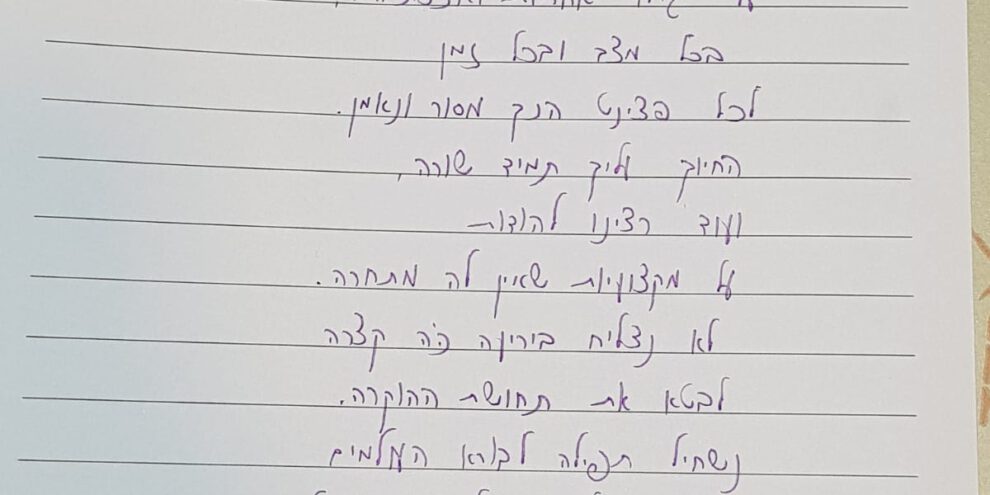 בכל מצב ובכל זמן
לכל פצינט הנך מסור ונאמן.
החיוך עליך תמיד שורה,
ועוד רצינו להודות
על מקצועיות שאין לה מתחרה.
לא נצליח ביריעה כ"ה קצרה
לבטא את תחושת ההוקרה.
נשחיל תפילה לבורא העולמים